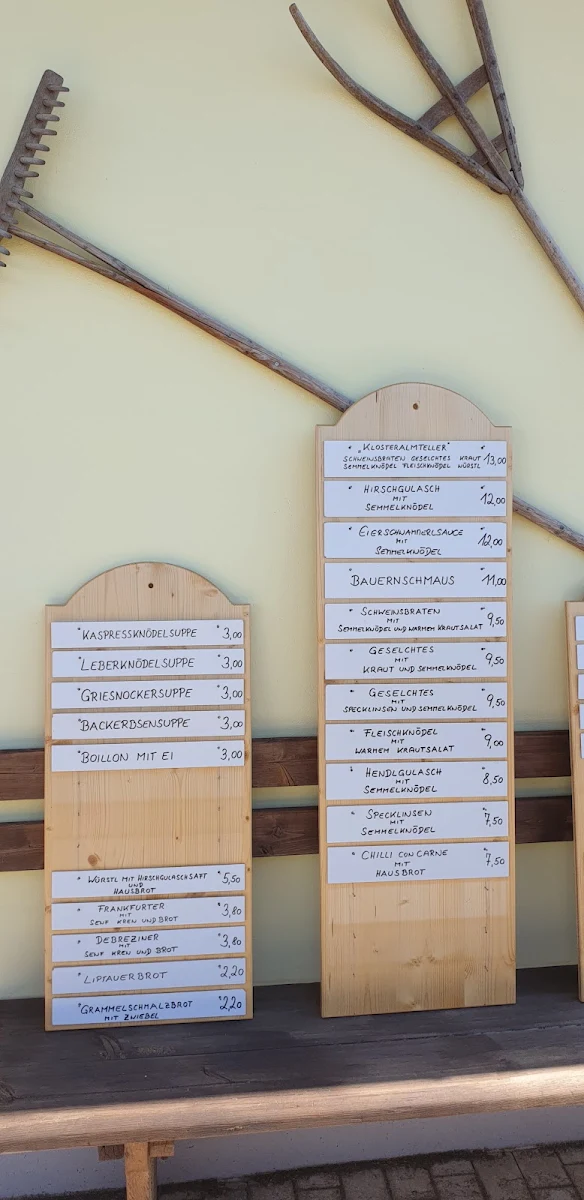 KASPRESSKNÖDELSUPPE 3,00
LEBERKNÖDELSUPPE 3,00
GRIESNOCKERSUPPE 3,00
BACKERBSENSUPPE 3,00
BOILLON MIT EI 3,00
WÜRSTL MIT HIRSCHGULASCHSAFT 5,50
UND
HAUSBROT
FRANKFURTER 3,80
MIT
SENF KREN UND BROT
DEBREZINER 3,80
MIT
SENF KREN UND BROT
LIPTAUERBROT 2,20
GRAMMELSCHMALZBROT 2,20
MIT ZWIEBEL
"KLOSTERALMTELLER" 13,00
SCHWEINSBRATEN GESELCHTES KRAUT
SEMMELKNÖDEL FLEISCHKNÖDEL WÜRSTL
HIRSCHGULASCH 12,00
MIT
SEMMELKNÖDEL
EIERSCHWAMMERLSAUCE 12,00
MIT
SEMMELKNÖDEL
BAUERNSCHMAUS 11,00
SCHWEINSBRATEN 9,50
MIT
SEMMELKNÖDEL UND WARMEN KRAUTSALAT
GESELCHTES 9,50
MIT
KRAUT UND SEMMELKNÖDEL
GESELCHTES 9,50
MIT
SPECKLINSEN UND SEMMELKNÖDEL
FLEISCHKNÖDEL 9,00
MIT
WARMEM KRAUTSALAT
HENDLGULASCH 8,50
MIT
SEMMELKNÖDEL
SPECKLINSEN 7,50
MIT
SEMMELKNÖDEL
CHILLI CON CARNE 7,50
MIT
HAUSBROT